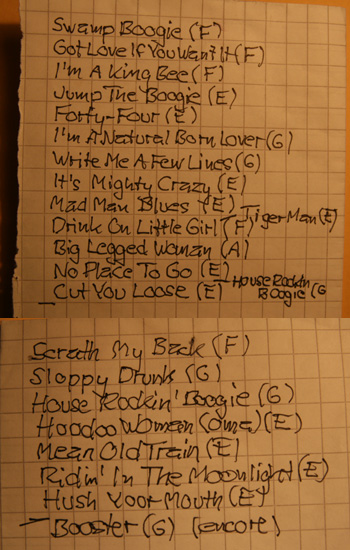 Swamp Boogie (F)
Got Love If You Want It (F)
I'm A King Bee (F)
Jump The Boogie (E)
Forty-Four (E)
I'm A Natural Born Lover (G)
Write Me A Few Lines (G)
It's Mighty Crazy (E)
Mad Man Blues (E)
Tiger Man (E)
Drink On Little Girl (F)
Big Legged Woman (A)
No Place To Go (E)
Cut You Loose (E)
House Rockin
Boogie (G
Scratch My Back (F)
Sloppy Drunk (G)
House Rockin' Boogie (G)
Hoodoo Woman (oma) (E)
Mean Old Train (E)
Ridin' In The Moonlight (E)
Hush Yoor Mouth (E)
Booster (G) (encore)